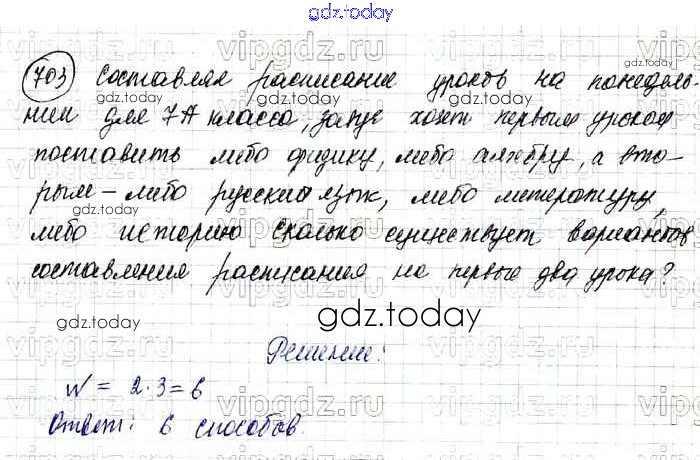 gdz.today
703 Составляя расписание уроков на понедель-
ник для 7А класса, завуч хочет первым уроком
поставить либо физику, либо алгебру, а вто-
рым - либо русский язык, либо литературу,
либо историю Сколько существует вариантов
составления расписания на первые два урока?
Решение:
N = 2·3=6
Ответ: 6 способов.